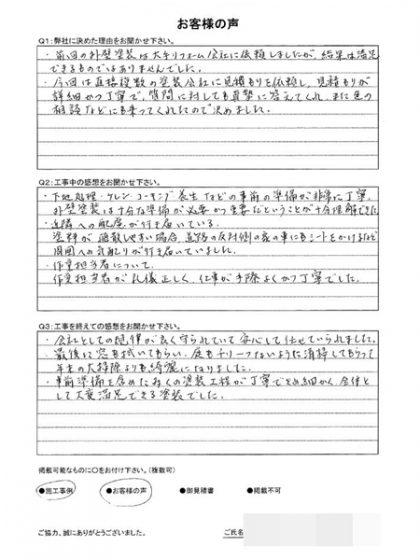 お客様の声
Q1:弊社に決めた理由をお聞かせ下さい。
・前回の外壁塗装は大手リフォーム会社に依頼しましたが、結果は満足
できるものではありませんでした。
・今回は直接複数の塗装会社に見積もりを依頼し、見積もりが
詳細かつ丁寧で、質問に対しても真摯に答えてくれ、また色の
相談などにも乗ってくれたので決めました。
Q2:工事中の感想をお聞かせ下さい。
・下地処理・ケレン・コーキング・養生などの事前の準備が非常に丁寧。
外壁塗装は十分な準備が必要かつ重要だということが十分理解できた。
・近隣への配慮が行き届いている。
塗料が飛散しやすい場合、道路の反対側の家の車にもシートをかけるなど
周囲への気配りが行き届いていました。
・作業担当者について、
作業担当者が礼儀正しく、仕事が手際よくかつ丁寧でした。
Q3:工事を終えての感想をお聞かせ下さい。
・会社としての規律が良く守られていて安心して任せていられました。
最後に窓も拭いてもらい、庭もチリ一つないように清掃してもらって
年末の大掃除よりも綺麗になりました。
・事前準備を含めた多くの塗装工程が丁寧できめ細かく、全体と
して大変満足できる塗装でした。
掲載可能なものに○をお付け下さい。(複数可)
●施工事例 ●お客様の声 ●御見積書 ●掲載不可
ご協力、誠にありがとうございました。 ご氏名